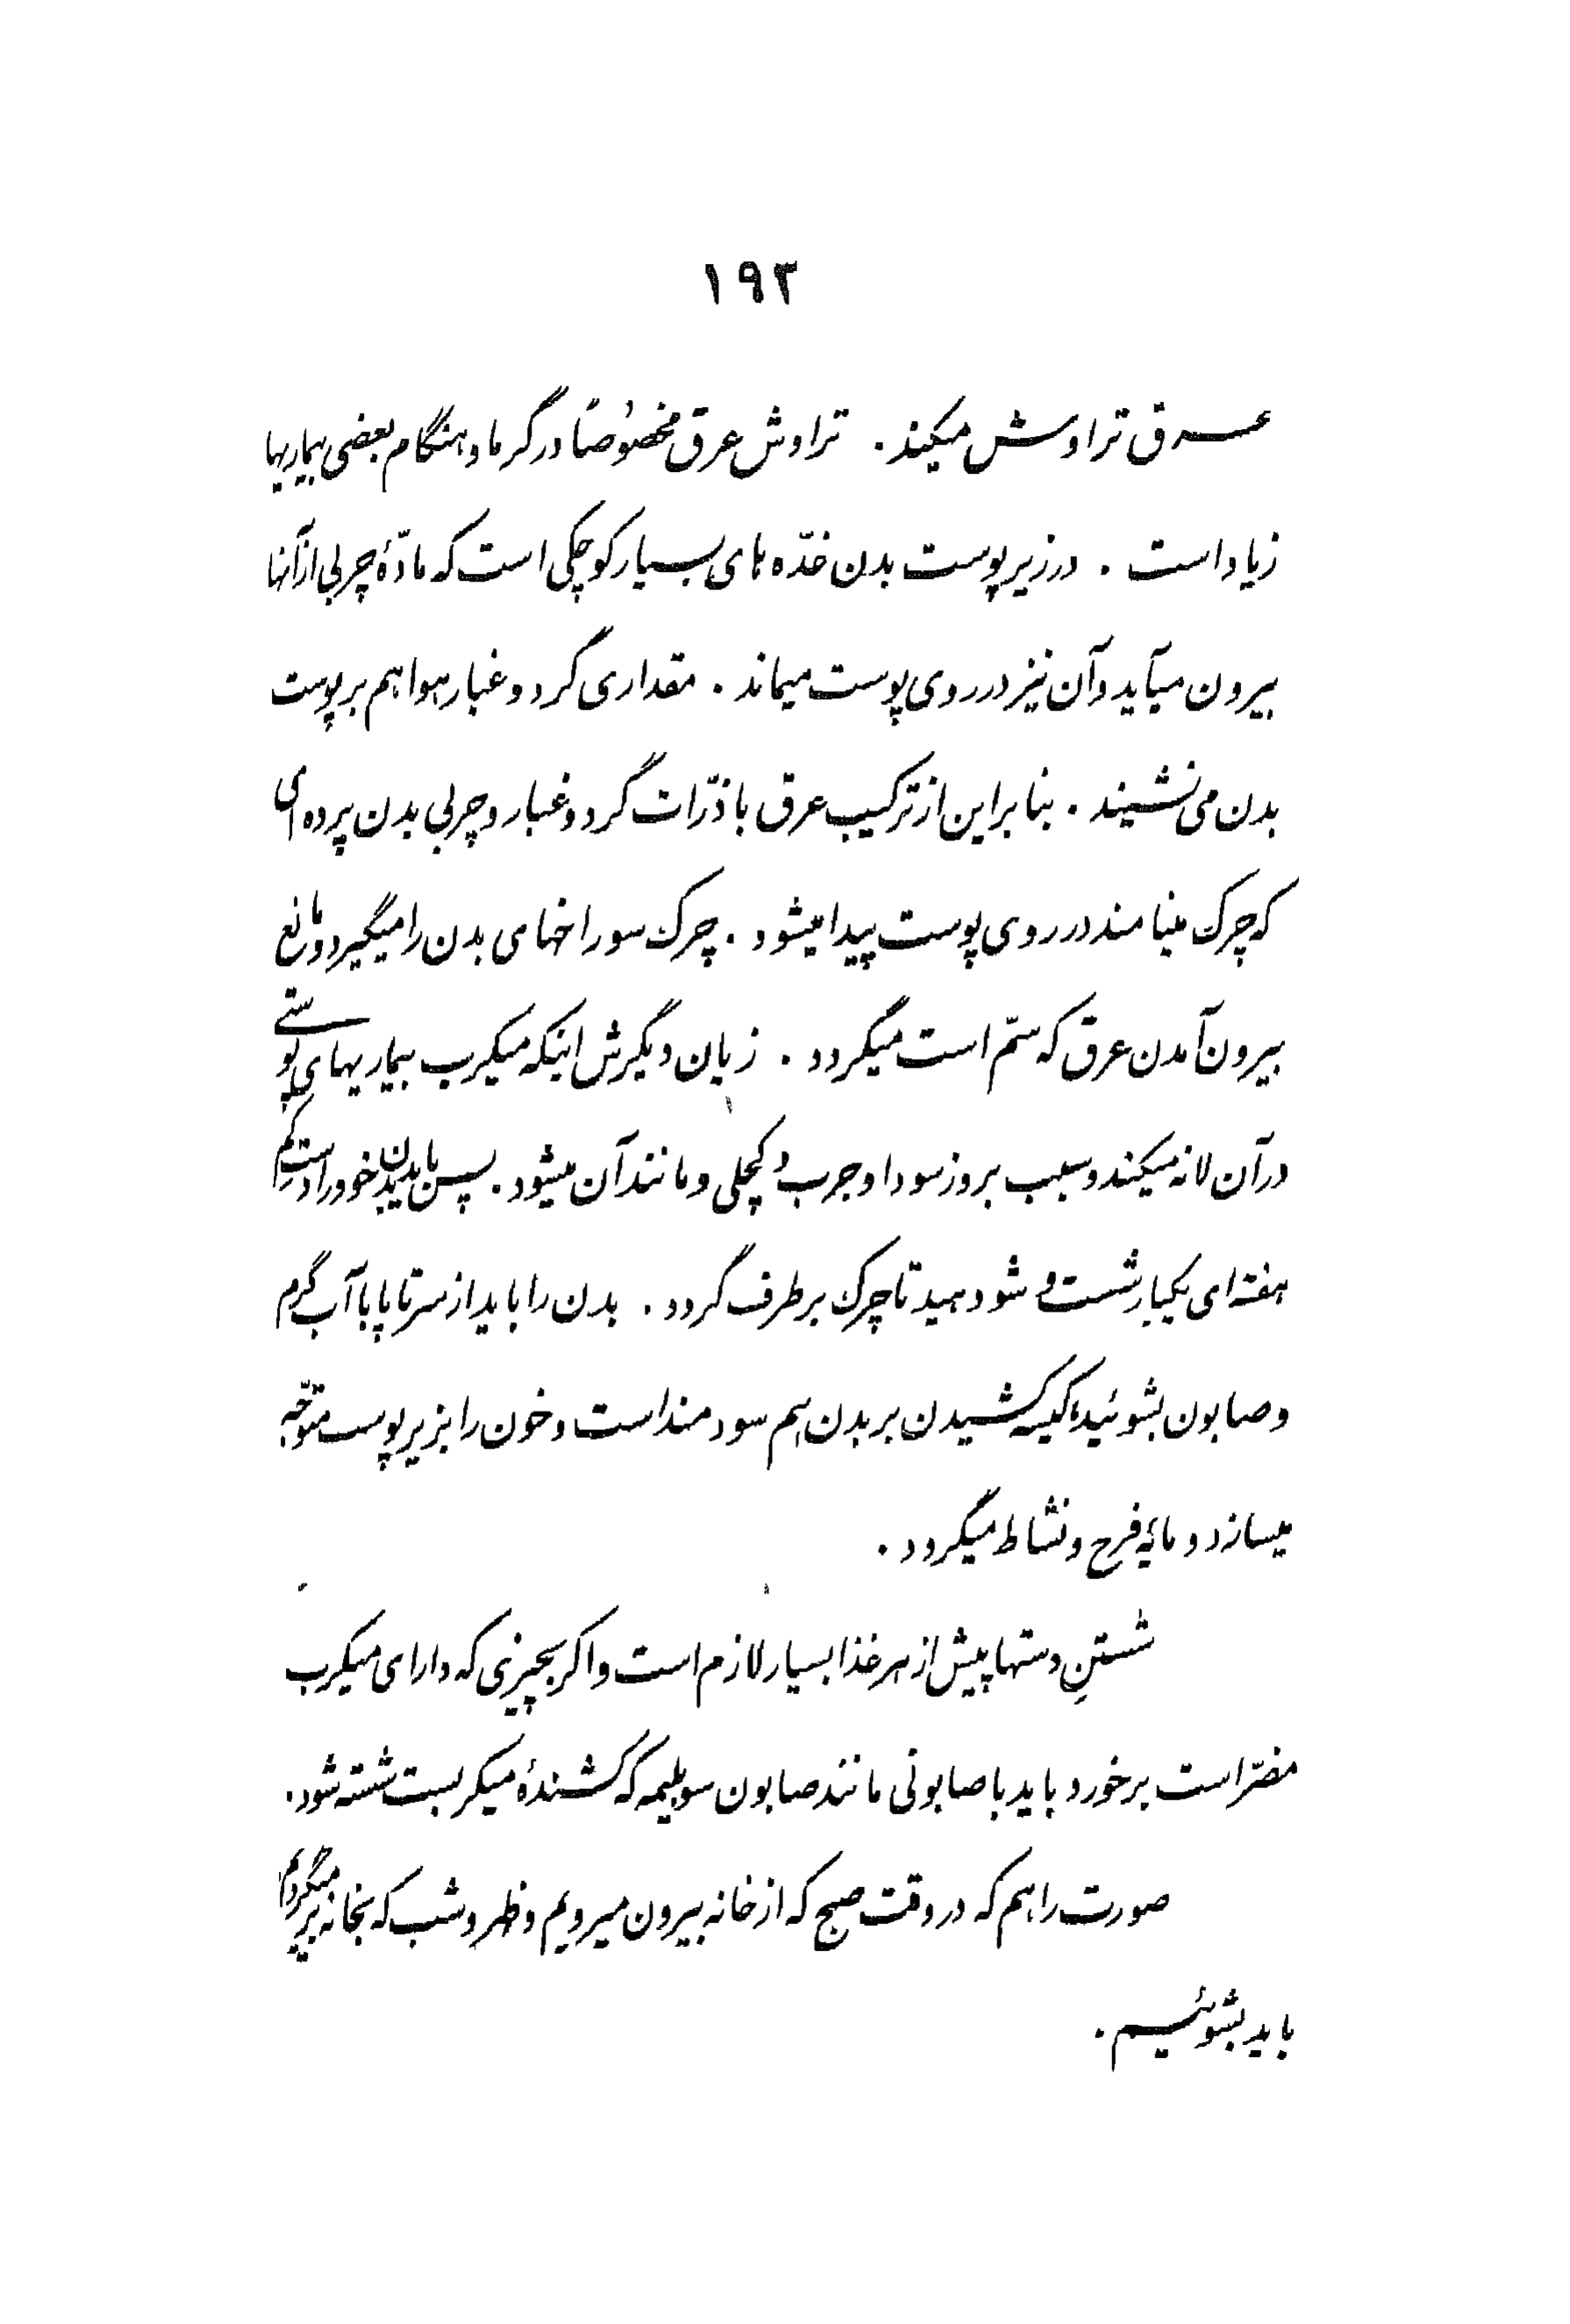 ۱۹۳
عرق تراوش میکند. تراوش عرق مخصوصاً در گرما و هنگام بعضی بیماریها
زیاد است. در زیر پوست بدن غدّه های بسیار کوچکی است که مادّهٔ چربی از آنها
بیرون میآید و آن نیز در روی پوست میماند. مقداری گرد و غبار هوا هم بر پوست
بدن می نشیند. بنا براین از ترکیب عرق با ذرّات گرد و غبار و چربی بدن پرده ای
که چرک مینامند در روی پوست پیدا میشود. چرک سوراخهای بدن را میگیرد و مانع
بیرون آمدن عرق که سمّ است میگردد. زیان دیگرش اینکه میکرب بیماریهای پوستی
در آن لانه میکند و سبب بروز سودا و جرب و کچلی و مانند آن میشود. پس باید بدن خود را دست کم
هفته ای یکبار شست و شو دهید تا چرک برطرف گردد. بدن را باید از سر تا پا با آب گرم
و صابون بشوئید، کیسه کشیدن بر بدن هم سودمند است و خون را بزیر پوست متوجّه
میسازد و مایهٔ فرح و نشاط میگردد.
شستنِ دستها پیش از هر غذا بسیار لازم است و اگر بچیزی که دارای میکرب
مضرّ است برخورد باید با صابونی مانند صابون سوبلیمه که کشندهٔ میکربست شسته شود.
صورت را هم که در وقت صبح که از خانه بیرون میرویم و ظهر و شب که بخانه بر میگردیم
باید بشوئیم.